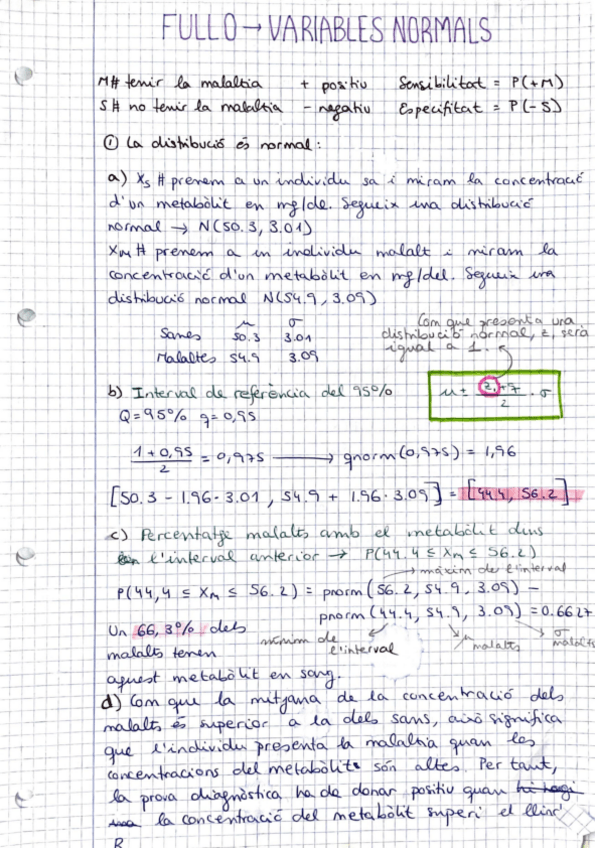 FULL 0 → VARIABLES NORMALS
M# tenir la malaltia + positiu Sensibilitat = P(+M)
S# no tenir la malaltia - negatiu Especifitat = P(-S)
① La distribució és normal:
a) Xs # prenem a un individu sa i miram la concentració
d'un metabòlit en mg/dl. Segueix una distribució
normal → N(50.3, 3.01)
XM # prenem a un individu malalt i miram la
concentració d'un metabòlit en mg/del. Segueix una
distribució normal N(54.9, 3.09)
μ σ
Sanes 50.3 3.01
Malaltes 54.9 3.09
Com que presenta una
distribució normal, z, serà
igual a 1.
b) Interval de referència del 95%
μ ± z1+q/2 · σ
Q = 95% q = 0,95
1 + 0,95 / 2 = 0,975 → qnorm(0,975) = 1,96
[50.3 - 1.96 · 3.01, 54.9 + 1.96 · 3.09] = [44.4, 56.2]
c) Percentatge malalts amb el metabòlit dins
l'interval anterior → P(44.4 ≤ XM ≤ 56.2)
màxim de l'interval
P(44,4 ≤ XM ≤ 56.2) = pnorm(56.2, 54.9, 3.09) -
pnorm(44.4, 54.9, 3.09) = 0.6627
Un 66,3% dels
malalts tenen
aquest metabòlit en sang.
mínim de
l'interval
μ malalts
σ malalts
d) Com que la mitjana de la concentració dels
malalts és superior a la dels sans, això significa
que l'individu presenta la malaltia quan les
concentracions del metabòlit són altes. Per tant,
la prova diagnòstica ha de donar positiu quan hi hagi
una la concentració del metabòlit superi el